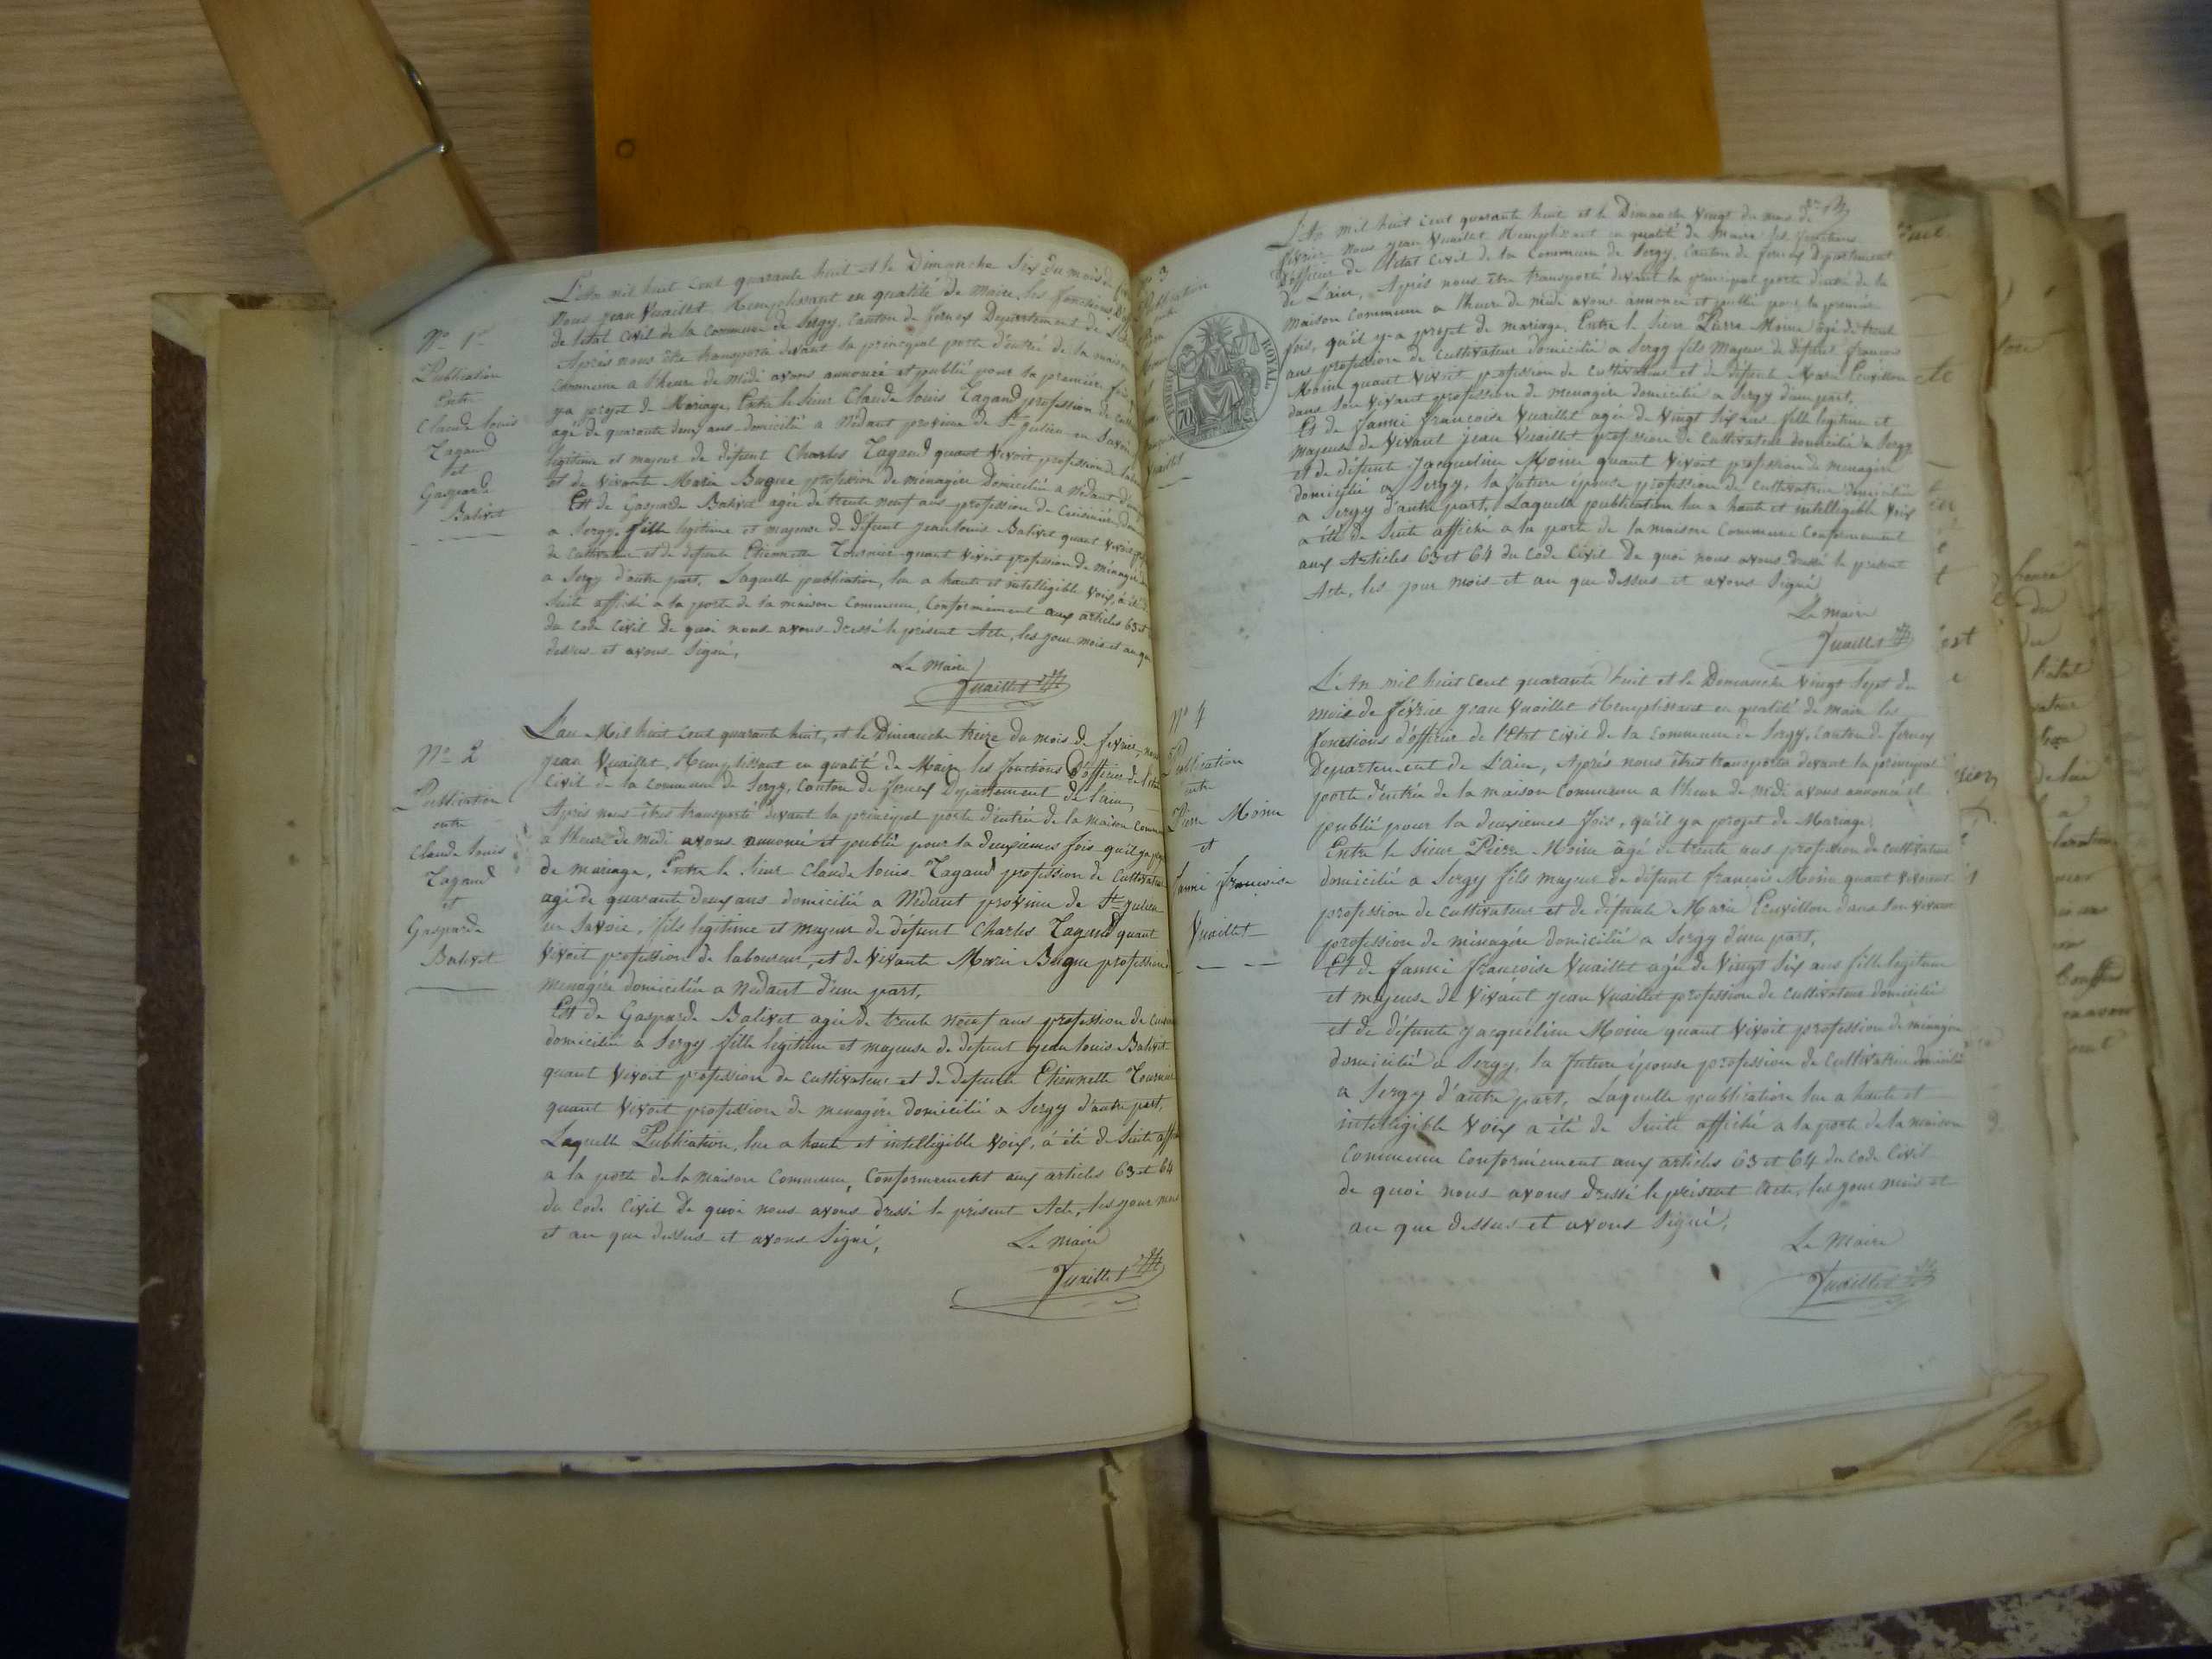 No 1er
Publication
Entre
Claude Louis
Tagand
et
Gasparde
Balivet
L'An mil huit cent quarante huit et le Dimanche Six du mois de
nous Jean Vuaillet, Remplissant en qualité de Maire, les fonctions
de l'état civil de la commune de Sergy, Canton de fernex Departement de
Après nous être transporté devant la principal porte d'entrée de la maison
commune a l'heure de Midi avons annoncé et publié pour la premiere fois
ya projet de Mariage, Entre le Sieur Claude Louis Tagand profession de
agé de quarante deux ans domicilié a Nédant province de St Julien en Savoie
legitime et majeur de défunt Charles Tagand quant vivoit profession de
et de vivante Marie Bugne profession de menagère domiciliée a Nédant
Et de Gasparde Balivet agée de trente neuf ans profession de cuisinière
a Sergy fille legitime et majeure de défunt Jean Louis Balivet quant vivoit
de cultivateur et de défunte Etiennette Tournier quant vivoit profession de ménagère
a Sergy d'autre part, Laquelle publication, lue a haute et intelligible Voix, a été
Suite affiché a la porte de la maison Commune, Conformément aux articles 63 et
du Code Civil De quoi nous avons dressé le présent Acte, les jour mois et an que
dessus et avons Signé,
Le Maire
Vuaillet
No 2
Publication
entre
Claude Louis
Tagand
et
Gasparde
Balivet
L'an Mil huit cent quarante huit, et le Dimanche treize du mois de fevrier, nous
Jean Vuaillet, Remplissant en qualité de Maire les fonctions d'officier de l'état
Civil de la commune de Sergy, Canton de fernex Departement de l'ain,
Après nous êtres transporté devant la principal porte d'entrée de la maison Commune
a l'heure de Midi avons annoncé et publié pour la deuxiemes fois qu'il ya projet
de mariage, Entre le Sieur Claude Louis Tagand profession de Cultivateur
agé de quarante deux ans domicilié a Nédant province de St Julien
en Savoie, fils legitime et majeur de défunt Charles Tagand quant
vivoit profession de laboureur, et de vivante Marie Bugne profession
menagère domiciliée a Nedant d'une part,
Et de Gasparde Balivet agée de trente neuf ans profession de
domiciliée a Sergy fille legitime et majeure de defunt Jean Louis Balivet
quant vivoit profession de cultivateur et de defunte Etiennette Tournier
quant vivoit profession de menagère domicilié a Sergy d'autre part,
Laquelle Publication, lue a haute et intelligible Voix, a été de Suite
a la porte de la maison Commune, Conformement aux articles 63 et 64
du Code Civil De quoi nous avons dressé le présent Acte, les jour mois
et an que dessus et avons Signé,
Le Maire
Vuaillet
No 3
Publication
Vuaillet
ROYAL
L'An mil huit cent quarante huit et le Dimanche Vingt du mois de
fevrier nous Jean Vuaillet Remplissant en qualité de Maire les fonctions
d'officier de l'état Civil de la Commune de Sergy, Canton de fernex Departement
de L'ain, Après nous être transporté devant la principal porte d'entré de la
maison commune a l'heure de midi avons annoncé et publié pour la premiere
fois, qu'il y-a projet de mariage, Entre le Sieur Pierre Moine agé de trente
ans profession de cultivateur domicilié a Sergy fils Majeur de défunt françois
Moine quant vivoit profession de cultivateur et de défunte Marie
dans Son vivant profession de menagère domicilié a Sergy d'une part,
Et de fanni françoise Vuaillet agée de Vingt Six ans fille legitime et
majeure de vivant Jean Vuaillet profession de Cultivateur domicilié a Sergy
et de défunte Jacqueline Moine quant vivoit profession de menagère
domicilié a Sergy, la future épouse profession de Cultivatrice domiciliée
a Sergy d'autre part, Laquelle publication lue a haute et intelligible Voix
a été de Suite affiché a la porte de la maison Commune Conformement
aux Articles 63 et 64 du Code Civil De quoi nous avons dressé le present
Acte, les jour mois et an que dessus et avons Signé,
Le maire
Vuaillet
No 4
Publication
entre
Pierre Moine
et
fanni françoise
Vuaillet
L'An mil huit cent quarante huit et le Dimanche Vingt Sept du
mois de février Jean Vuaillet Remplissant en qualité de Maire les
fonctions d'officier de l'Etat Civil de la Commune de Sergy, Canton de fernex
Département de L'ain, Après nous être transporter devant la principal
porte d'entrée de la maison Commune a l'heure de midi avons annoncé et
publié pour la deuxiemes fois, qu'il ya projet de Mariage,
Entre le Sieur Pierre Moine âgé de trente ans profession de cultivateur
domicilié a Sergy fils majeur de défunt françois Moine quant vivoit
profession de cultivateur et de défunte Marie dans Son vivant
profession de ménagère domicilié a Sergy d'une part,
Et de fanni françoise Vuaillet agée de Vingt Six ans fille legitime
et majeure de Vivant Jean Vuaillet profession de cultivateur domicilié
et de défunte Jacqueline Moine quant vivoit profession de ménagère
domicilié a Sergy, la future épouse profession de Cultivatrice domicilié
a Sergy d'autre part, Laquelle publication lue a haute et
intelligible Voix a été de Suite affiché a la porte de la maison
Commune Conformément aux articles 63 et 64 du Code Civil
de quoi nous avons dressé le présent Acte, les jour mois et
an que dessus et avons Signé,
Le Maire
Vuaillet